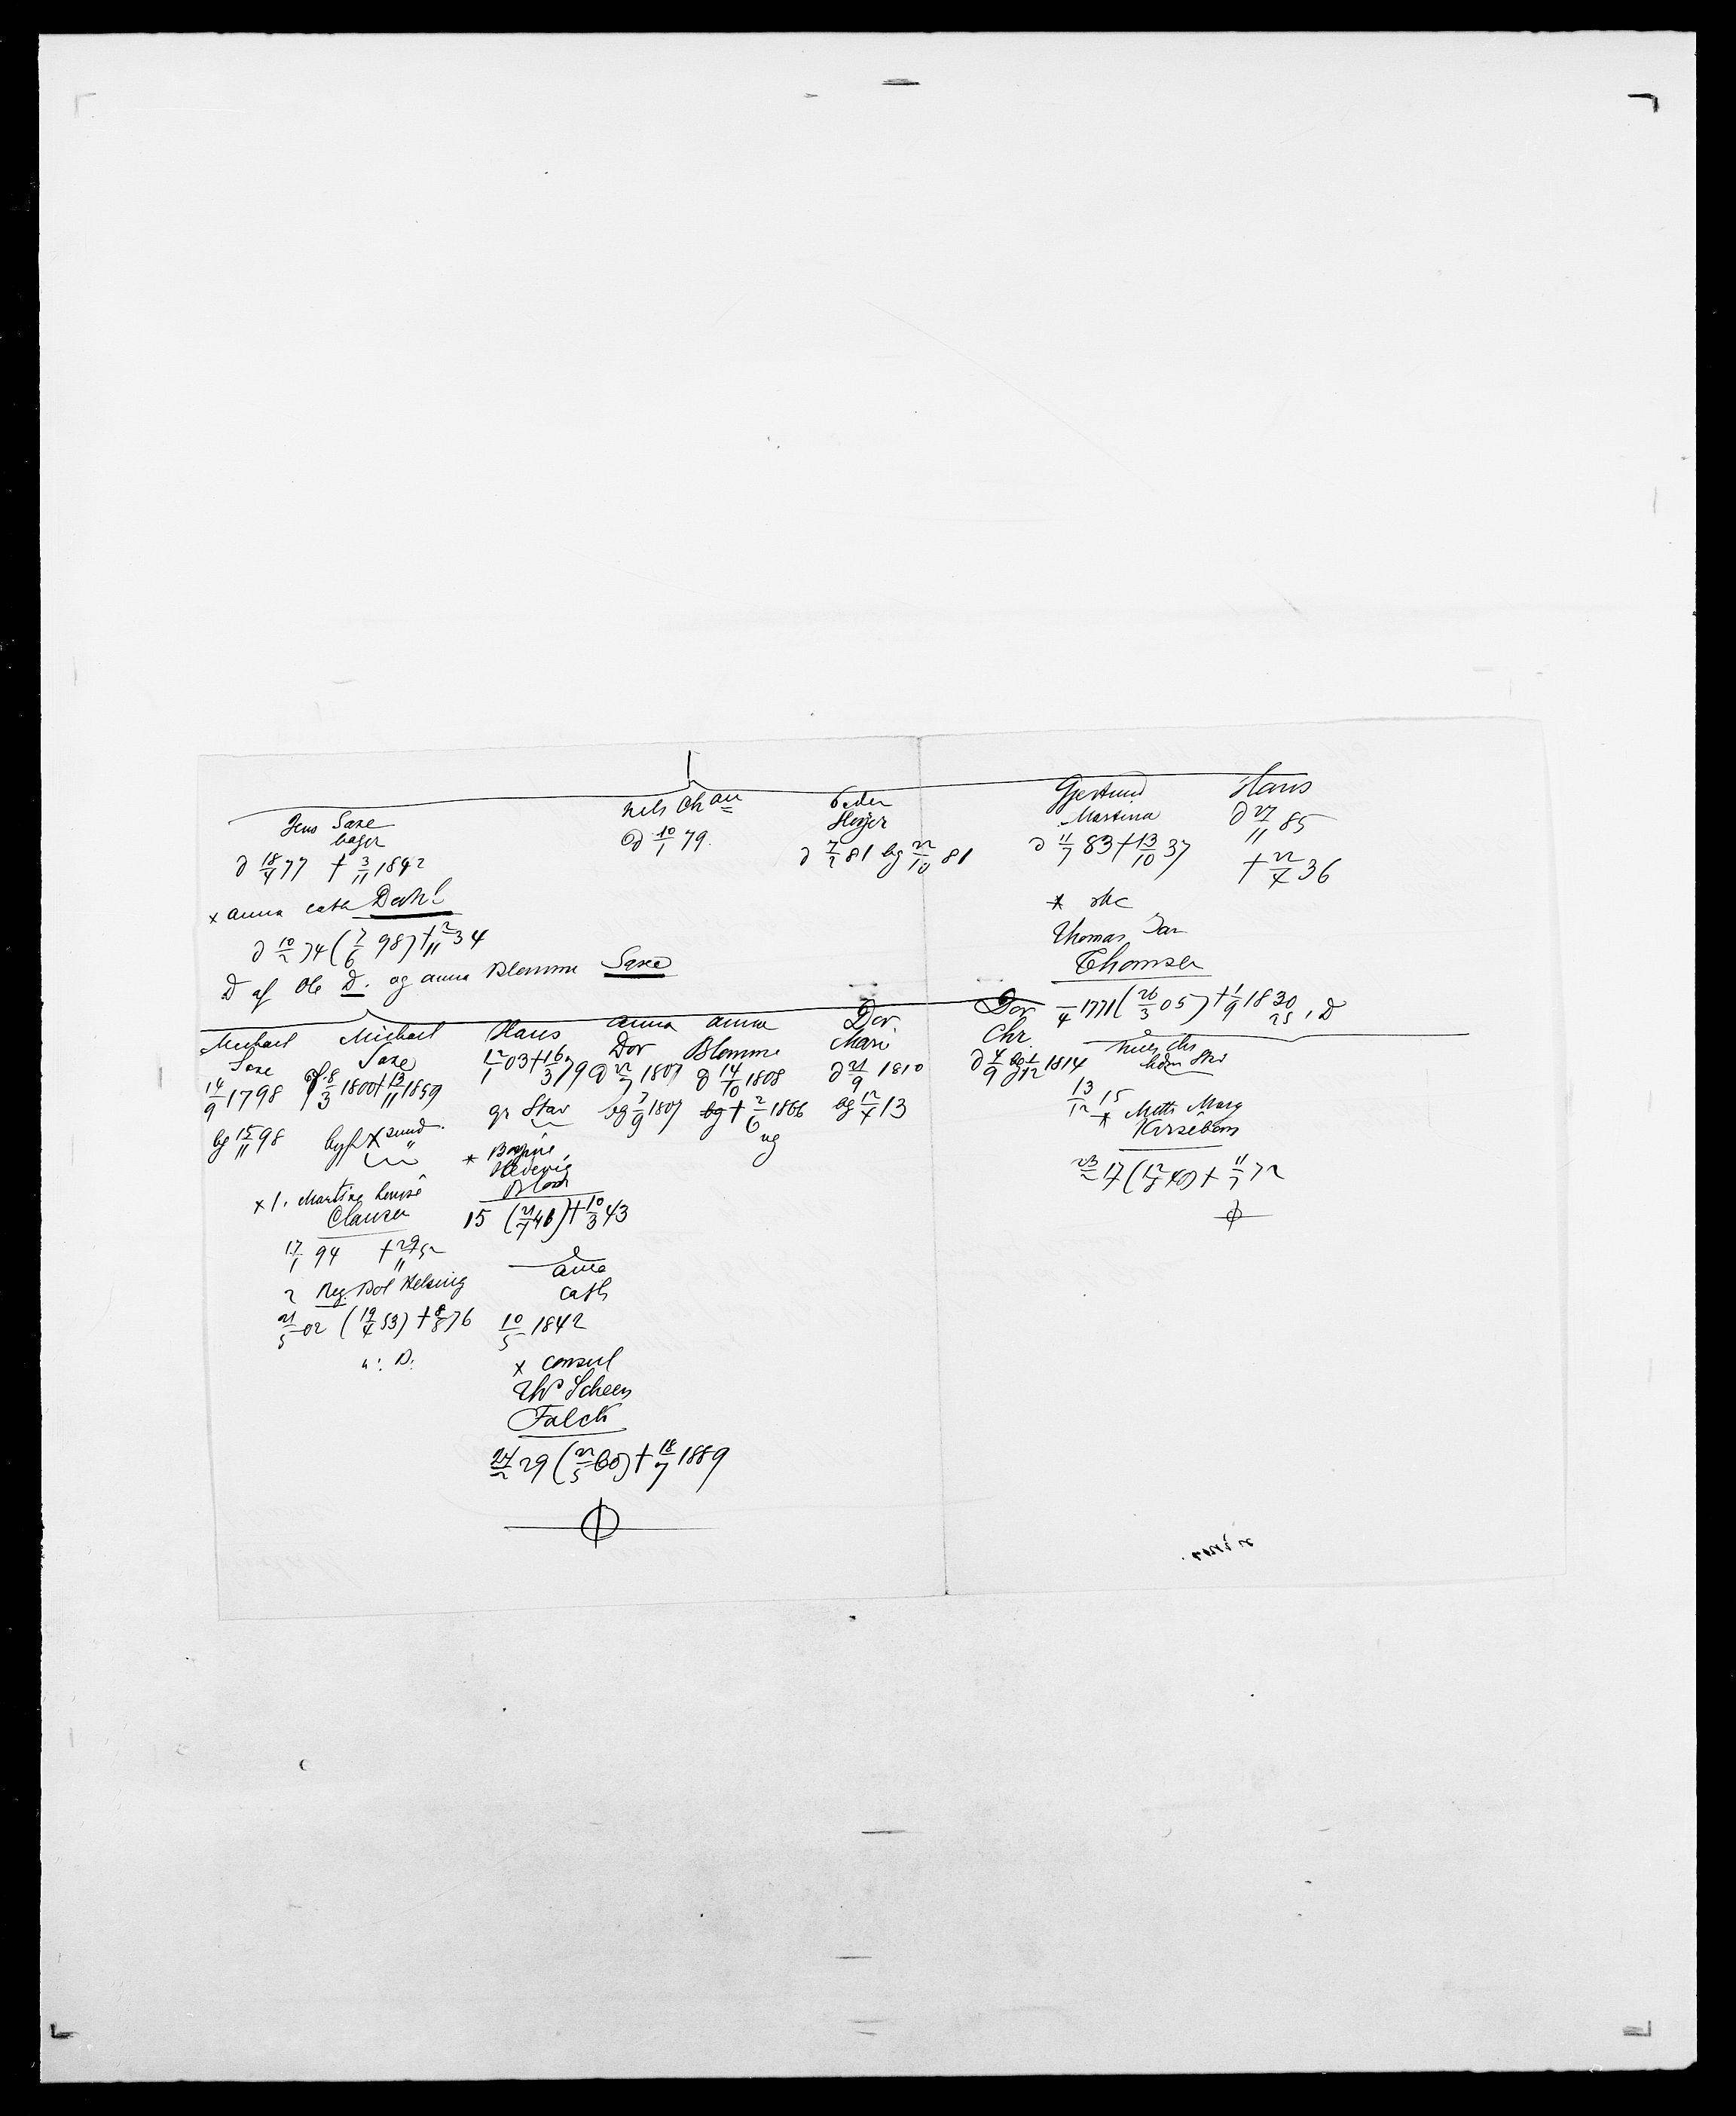 Jens Saxe
bager
d 18/4 77 † 3/11 1842
x anna cath Dahl
d 10/2 74 (7/6 98) † 2/11 34
D af Ole D. og anna Blomme Saxe
Nels Chr
d 10/1 79.
Peder
Høyer
d 7/2 81 bg 22/10 81
Gjertrud
Martina
d 11/7 83 † 13/10 37
Thomas Jan
Thomsen
/4 1771 (26/3 05) † 1/9 1830
25, D
Hans
d 27/11 85
† 22/4 36
Michael
Saxe
14/9 1798
bg 15/11 98
Michael
Saxe
8/3 1800 † 13/11 1859
x 1. Martine Louise
Clausen
17/1 94 † 29/11 52
2 Reg. Dor Helsing
21/5 02 (19/4 53) † 8/8 76
u: B.
Hans
12/1 03 † 16/3 79
gr Stav
* Bergine
Hedevig
Block
15 (21/7 46) † 10/3 43
anna
cath
10/5 1842
x consul
Ths Scheen
Falck
24/2 29 (22/5 60) † 18/7 1889
anna
Dor
d 22/7 1807
bg 7/9 1807
anna
Blomme
d 14/10 1808
bg † 2/6 1866
ug
Dor.
Mari
d 21/9 1810
bg 12/4 13
Dor
Chr.
d 4/9 bg 1/12 1814
Niels Chr
13/12 15
* Mette Marg
Kirsebom
23/2 17 (12/8 40) † 11/7 72